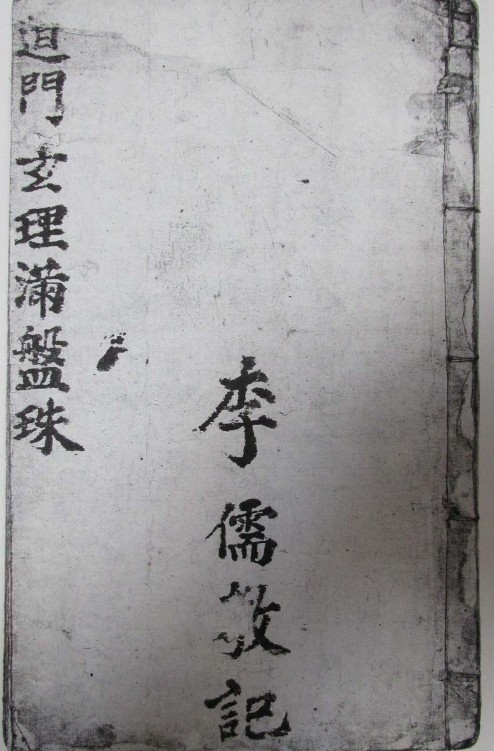 李儒敬記
門玄理滿盤珠